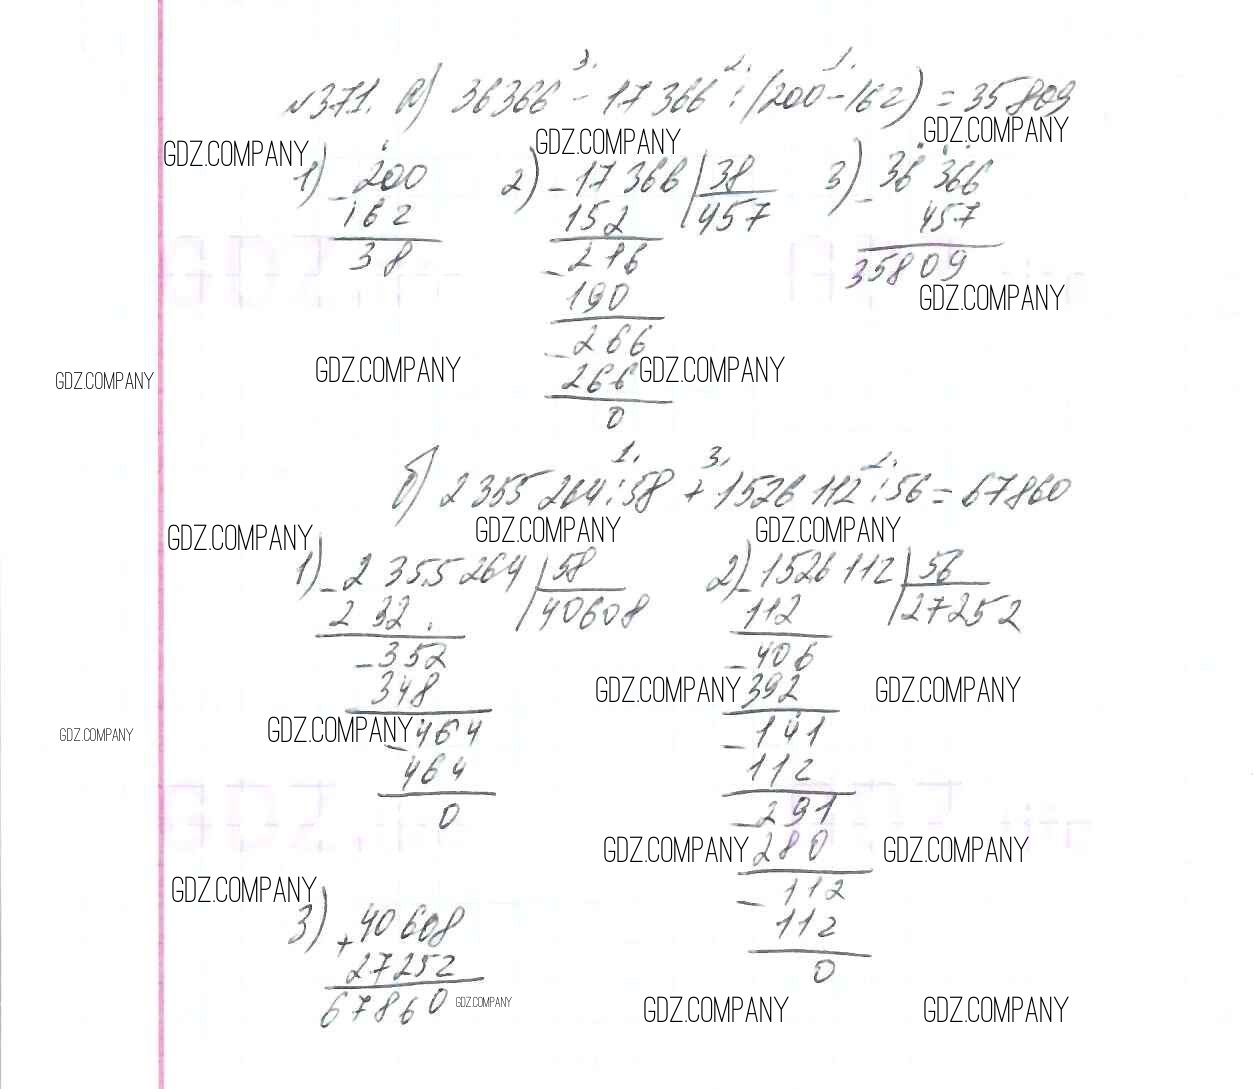 №371. а) 36366 - 17366 : (200 - 162) = 35809
3. 2. 1.
GDZ.COMPANY GDZ.COMPANY GDZ.COMPANY
1) - 200 2) - 17 366 | 38 3) - 36 366
162 152 457 457
38 - 216 35809
190 GDZ.COMPANY
- 266
GDZ.COMPANY 266 GDZ.COMPANY
GDZ.COMPANY
0
1. 3. 2.
б) 2 355 264 : 58 + 1526 112 : 56 = 67860
GDZ.COMPANY GDZ.COMPANY GDZ.COMPANY
1) - 2 355 264 | 58 2) - 1526 112 | 56
2 32 40608 112 27252
- 352 - 406
348 GDZ.COMPANY 392 GDZ.COMPANY
GDZ.COMPANY - 464 - 141
GDZ.COMPANY
464 112
0 - 291
GDZ.COMPANY 280 GDZ.COMPANY
GDZ.COMPANY - 112
3) + 40 608 112
27252 0
67860 GDZ.COMPANY GDZ.COMPANY GDZ.COMPANY